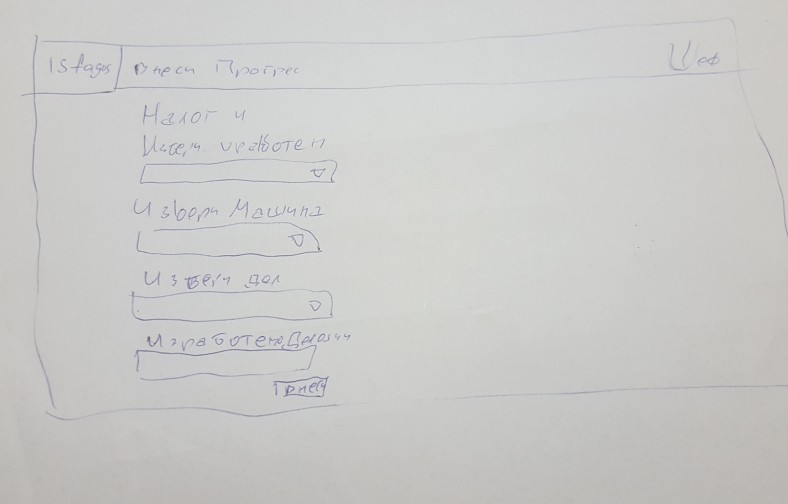 Внеси Прогрес
Шеф
Налог и
вработен
Избери Машина
Избери дел
Изработено Делови
Внеси